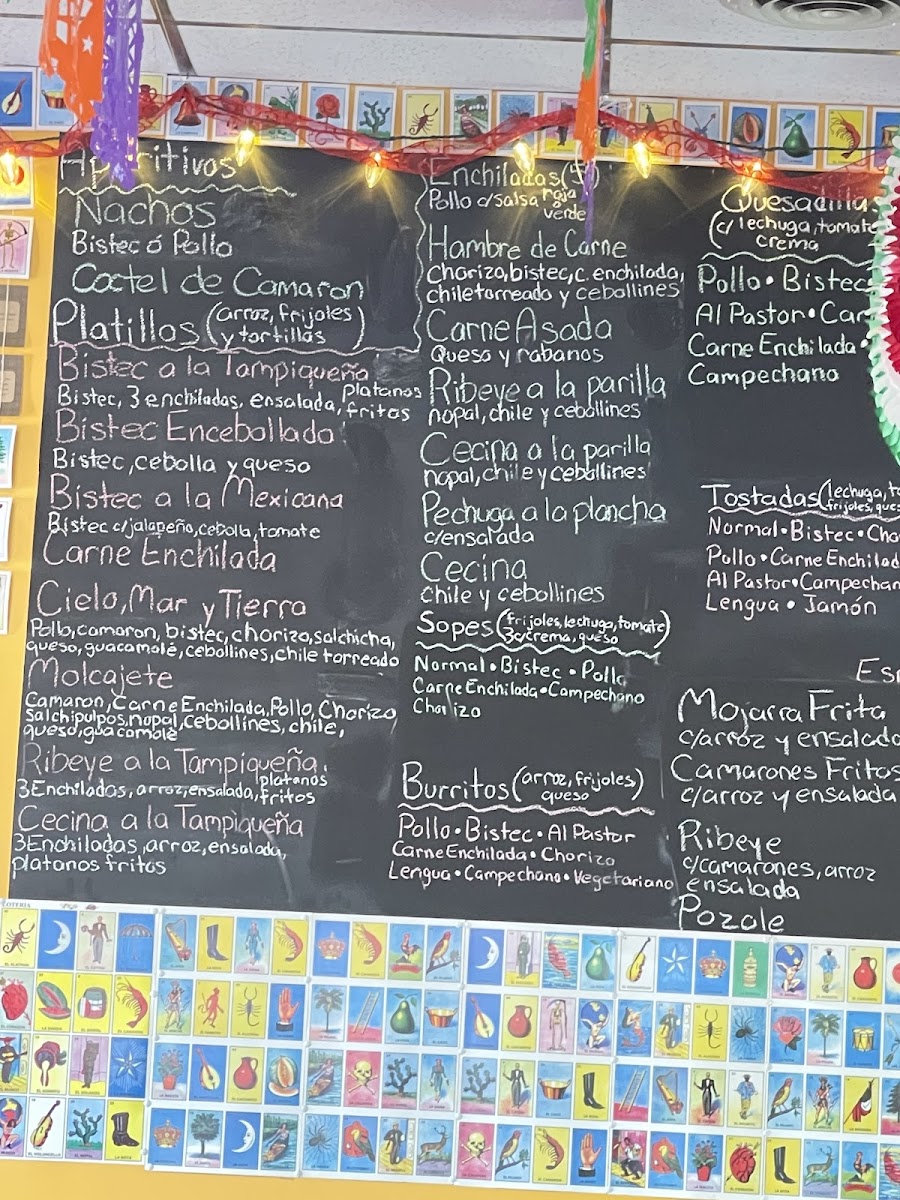 Aperitivos
Nachos
Bistec ó Pollo
Coctel de Camaron
Platillos (arroz, frijoles
y tortillas)
Bistec a la Tampiqueña
Bistec, 3 enchiladas, ensalada, platanos
fritos
Bistec Encebollado
Bistec, cebolla y queso
Bistec a la Mexicana
Bistec c/jalapeño, cebolla, tomate
Carne Enchilada
Cielo, Mar y Tierra
Pollo, camaron, bistec, chorizo, salchicha,
queso, guacamole, cebollines, chile torreado
Molcajete
Camaron, Carne Enchilada, Pollo, Chorizo,
Salchipulpos, nopal, cebollines, chile,
queso, guacamole
Ribeye a la Tampiqueña
3 Enchiladas, arroz, ensalada, platanos
fritos
Cecina a la Tampiqueña
3 Enchiladas, arroz, ensalada,
platanos fritos
Enchiladas
Pollo c/salsa roja
o
verde
Hambre de Carne
Chorizo, bistec, c. enchilada,
chile torreado y cebollines
Carne Asada
Queso y rabanos
Ribeye a la parilla
nopal, chile y cebollines
Cecina a la parilla
nopal, chile y cebollines
Pechuga a la plancha
c/ensalada
Cecina
chile y cebollines
Sopes (frijoles, lechuga, tomate
crema, queso)
Normal • Bistec • Pollo
Carne Enchilada • Campechano
Chorizo
Burritos (arroz, frijoles)
queso
Pollo • Bistec • Al Pastor
Carne Enchilada • Chorizo
Lengua • Campechano • Vegetariano
Quesadillas
(c/ lechuga, tomate
crema
Pollo • Bistec
Al Pastor • Car
Carne Enchilada •
Campechano
Tostadas (lechuga, to
frijoles, ques
Normal • Bistec • Cho
Pollo • Carne Enchilad
Al Pastor • Campechan
Lengua • Jamón
Es
Mojarra Frita
c/arroz y ensalada
Camarones Fritos
c/arroz y ensalada
Ribeye
c/camarones, arroz
ensalada
Pozole
LOTERIA